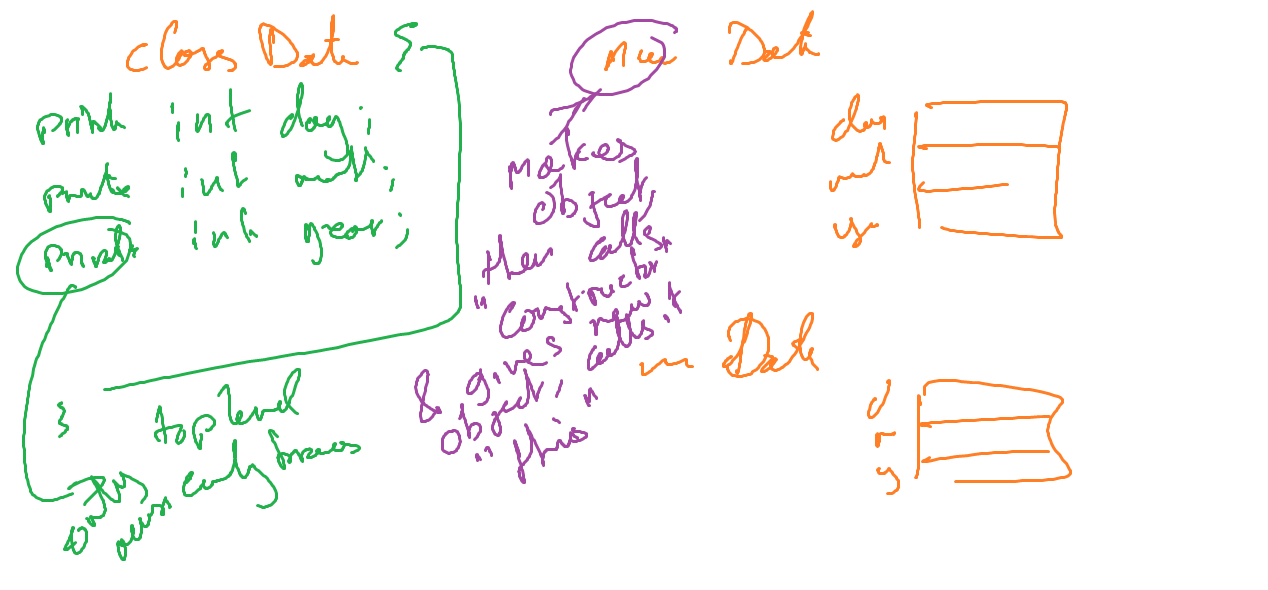 class Date {
private int day;
private int month;
private int year;
}
top level
curly braces
new Date
makes
object,
then calls
"constructor"
& gives new
object, calls it
"this"
day
y
new Date
d
m
y